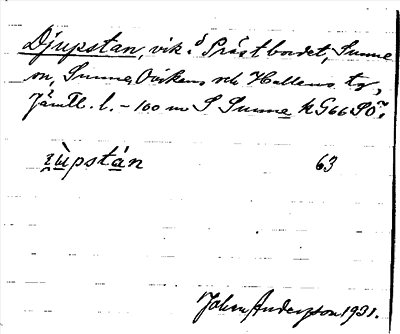 Djupstan, vik i Prästbordet, Sunne
sn, Sunne, Ovikens och Hallens tg,
Jämtl. l. - 100 m S Sunne k G66 SO.
z̨ùpstán 63
John Anderson 1931.